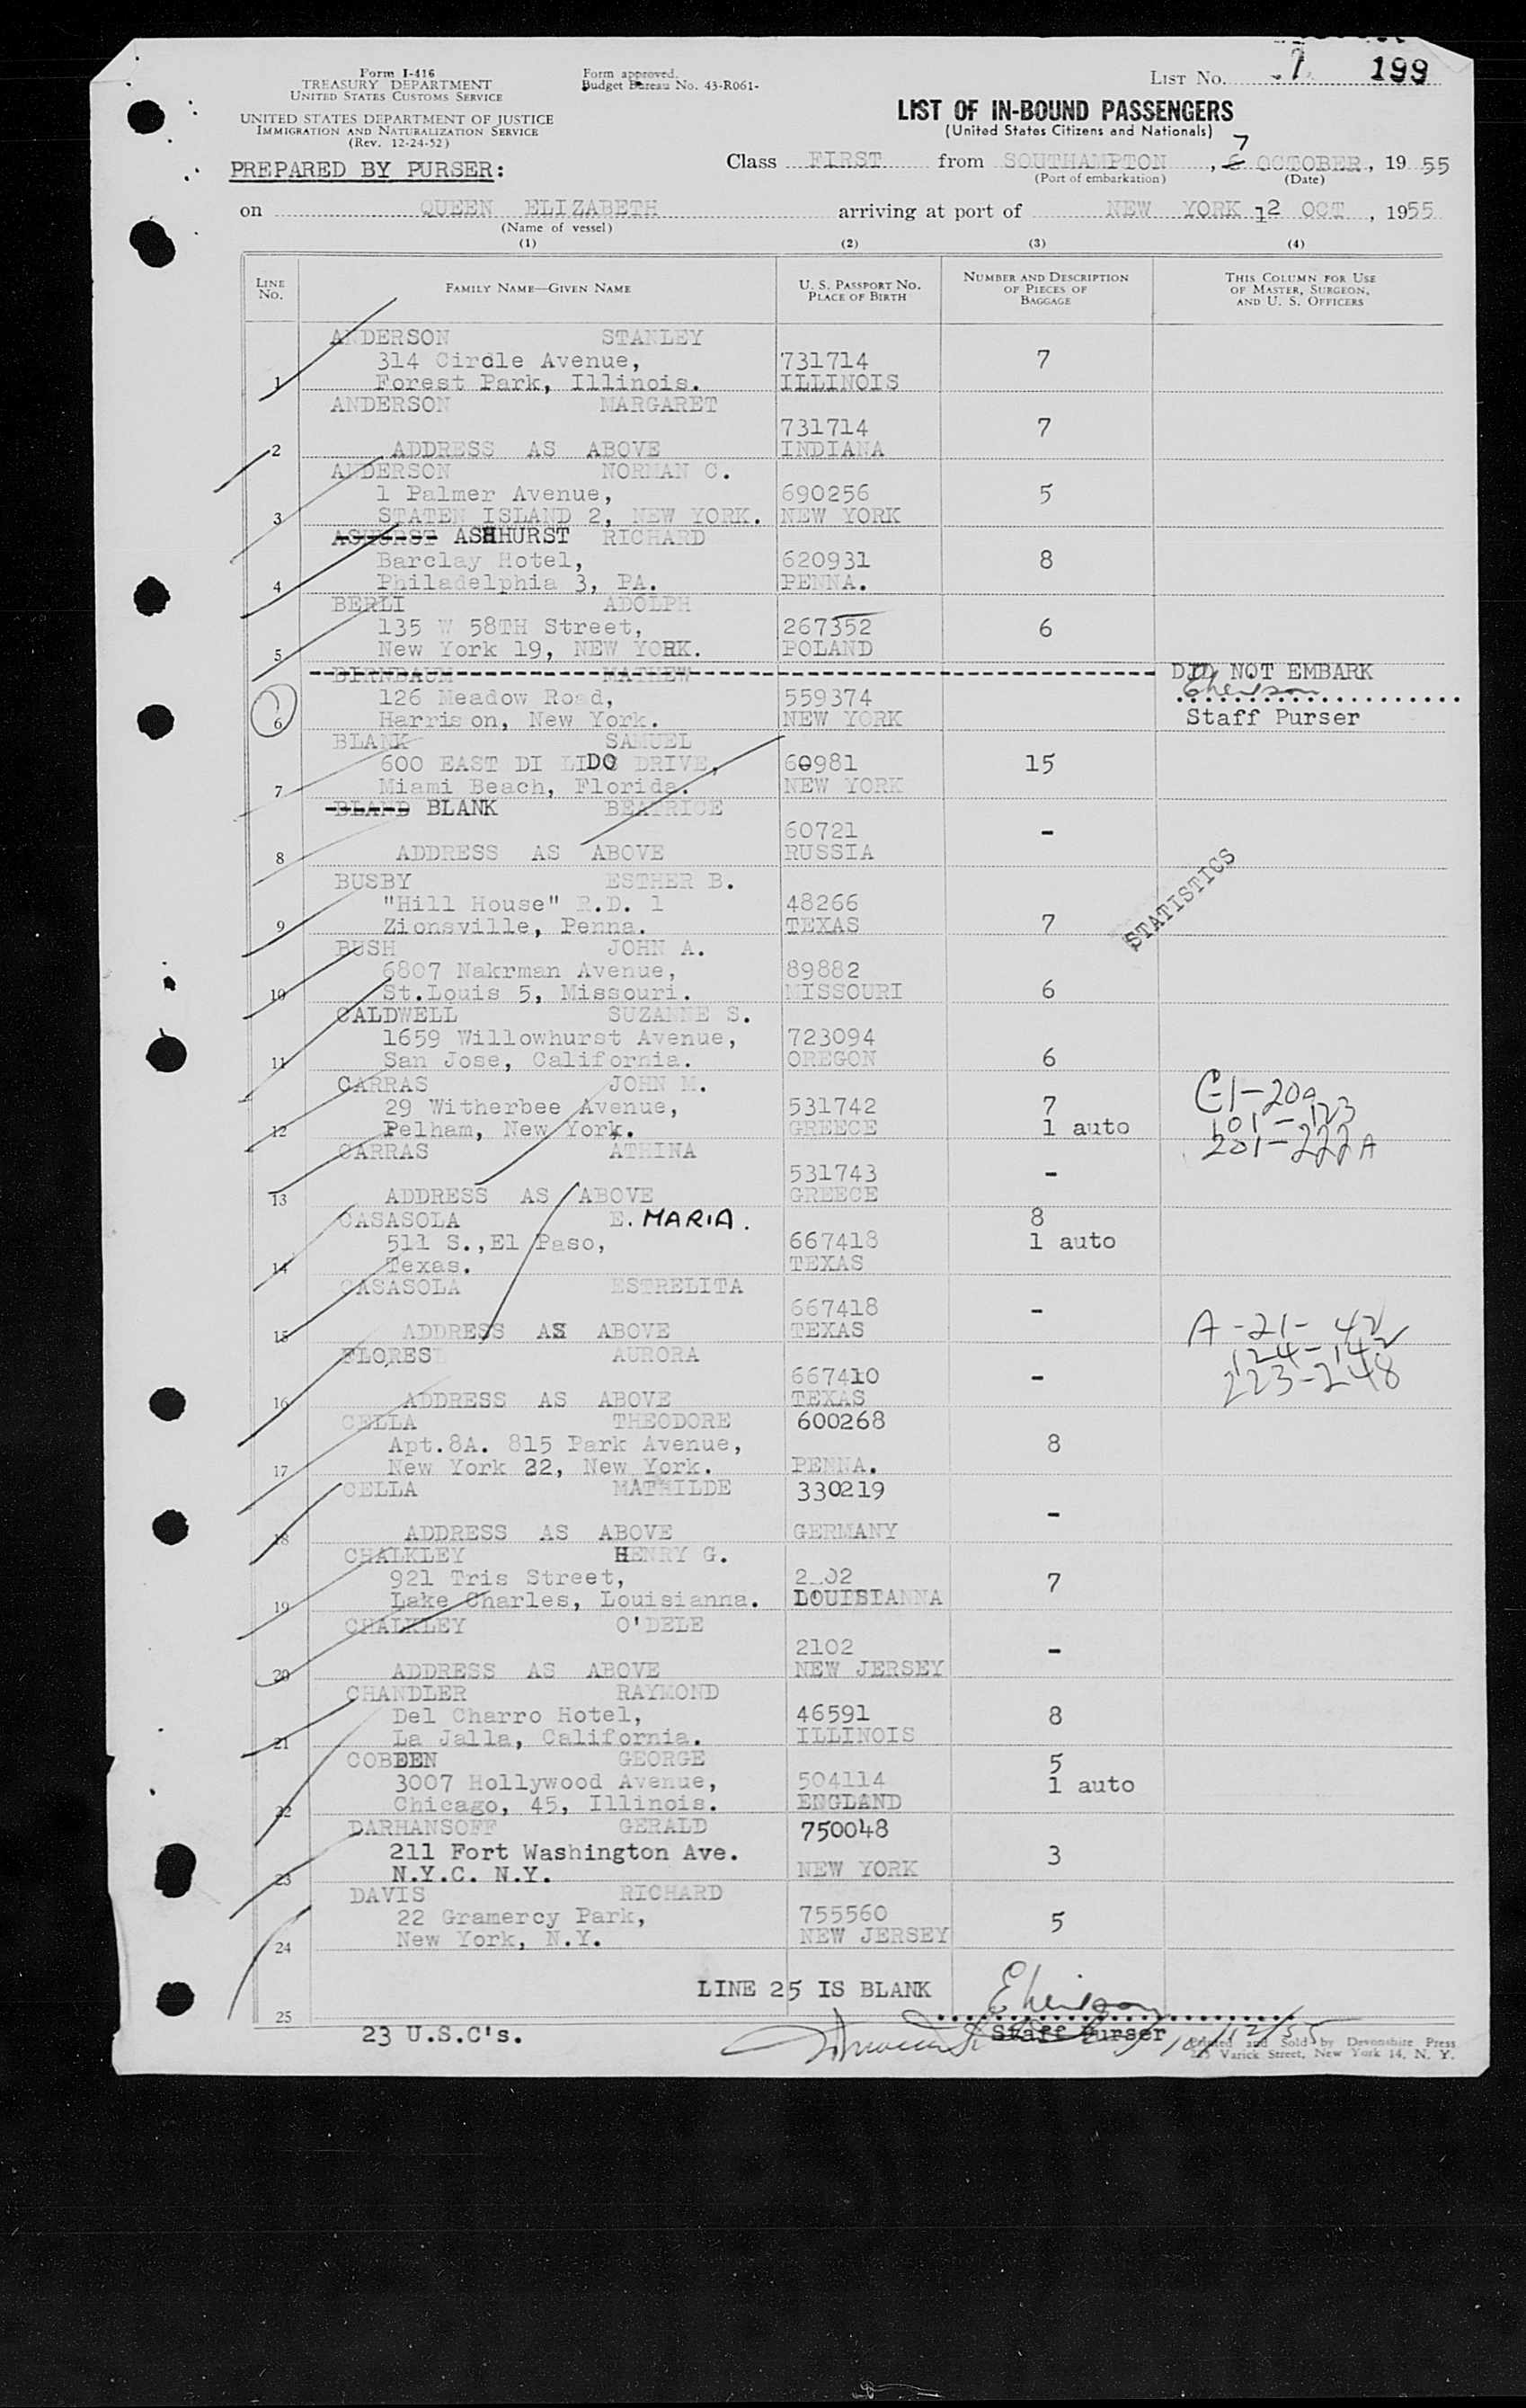 Form I-416
TREASURY DEPARTMENT
UNITED STATES CUSTOMS SERVICE
UNITED STATES DEPARTMENT OF JUSTICE
IMMIGRATION AND NATURALIZATION SERVICE
(Rev. 12-24-52)
Form approved.
Budget Bureau No. 43-R061-
LIST NO. 1 199
LIST OF IN-BOUND PASSENGERS
(United States Citizens and Nationals)
PREPARED BY PURSER:
Class FIRST from SOUTHAMPTON, 7 OCTOBER, 1955
(Port of embarkation) (Date)
on QUEEN ELIZABETH arriving at port of NEW YORK 12 OCT, 1955
(Name of vessel)
(1) (2) (3) (4)
LINE NO. FAMILY NAME—GIVEN NAME U. S. PASSPORT NO. PLACE OF BIRTH NUMBER AND DESCRIPTION OF PIECES OF BAGGAGE THIS COLUMN FOR USE OF MASTER, SURGEON, AND U. S. OFFICERS
ANDERSON STANLEY
314 Circle Avenue, 731714 7
1 Forest Park, Illinois. ILLINOIS
ANDERSON MARGARET
731714 7
2 ADDRESS AS ABOVE INDIANA
ANDERSON NORMAN C.
1 Palmer Avenue, 690256 5
3 STATEN ISLAND 2, NEW YORK. NEW YORK
ASHURST ASHHURST RICHARD
Barclay Hotel, 620931 8
4 Philadelphia 3, PA. PENNA.
BERLI ADOLPH
135 W 58TH Street, 267352 6
5 New York 19, NEW YORK. POLAND
BIRNBAUM MATHEW DID NOT EMBARK
126 Meadow Road, 559374
6 Harrison, New York. NEW YORK Staff Purser
BLANK SAMUEL
600 EAST DI LIDO DRIVE, 60981 15
7 Miami Beach, Florida. NEW YORK
BLAND BLANK BEATRICE
60721 -
8 ADDRESS AS ABOVE RUSSIA
STATISTICS
BUSBY ESTHER B.
"Hill House" R.D. 1 48266
9 Zionsville, Penna. TEXAS 7
BUSH JOHN A.
6807 Nakrman Avenue, 89882
10 St.Louis 5, Missouri. MISSOURI 6
CALDWELL SUZANNE S.
1659 Willowhurst Avenue, 723094
11 San Jose, California. OREGON 6
CARRAS JOHN M.
29 Witherbee Avenue, 531742 7
12 Pelham, New York. GREECE 1 auto
C-1-20A
101-123
201-222A
CARRAS ATHINA
531743 -
13 ADDRESS AS ABOVE GREECE
CASASOLA E. MARIA. 8
511 S.,El Paso, 667418 1 auto
14 Texas. TEXAS
CASASOLA ESTRELITA
667418 -
15 ADDRESS AS ABOVE TEXAS
A-21-42
124-142
223-248
FLORES AURORA
667410 -
16 ADDRESS AS ABOVE TEXAS
CELLA THEODORE 600268
Apt.8A. 815 Park Avenue, 8
17 New York 22, New York. PENNA.
CELLA MATHILDE 330219
-
18 ADDRESS AS ABOVE GERMANY
CHALKLEY HENRY G.
921 Tris Street, 7
19 Lake Charles, Louisianna. LOUISIANNA
CHALKLEY O'DELE
2102 -
20 ADDRESS AS ABOVE NEW JERSEY
CHANDLER RAYMOND
Del Charro Hotel, 46591 8
21 La Jalla, California. ILLINOIS
COBDEN GEORGE 5
3007 Hollywood Avenue, 504114 1 auto
22 Chicago, 45, Illinois. ENGLAND
DARHANSOFF GERALD 750048
211 Fort Washington Ave. 3
23 N.Y.C. N.Y. NEW YORK
DAVIS RICHARD
22 Gramercy Park, 755560 5
24 New York, N.Y. NEW JERSEY
LINE 25 IS BLANK
25
23 U.S.C's. Staff Purser 10/12/55
Printed and Sold by Devonshire Press
Varick Street, New York 14, N. Y.